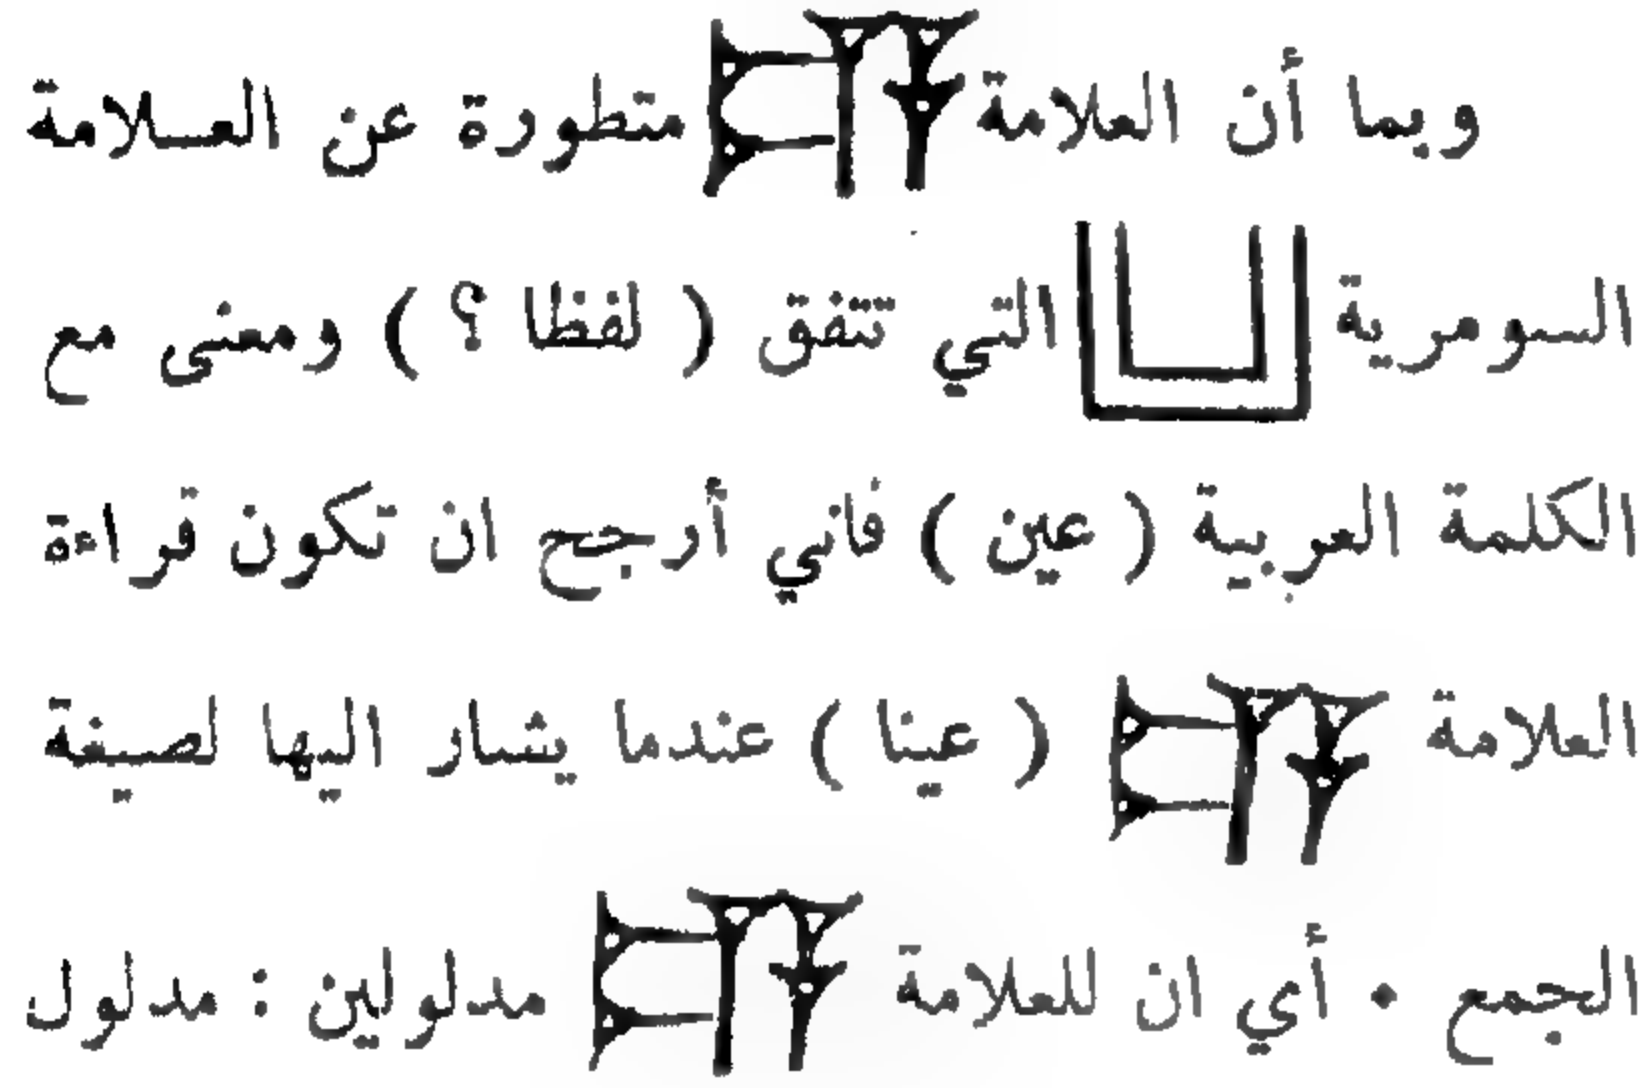 وبما أن العلامة 𒂍 متطورة عن العــلامة
السومرية التي تتفق ( لفظا ؟ ) ومعنى مع
الكلمة العربية ( عين ) فاني أرجح ان تكون قراءة
العلامة 𒂍 ( عينا ) عندما يشار اليها لصيغة
الجمع ٠ أي ان للعلامة 𒂍 مدلولين : مدلول